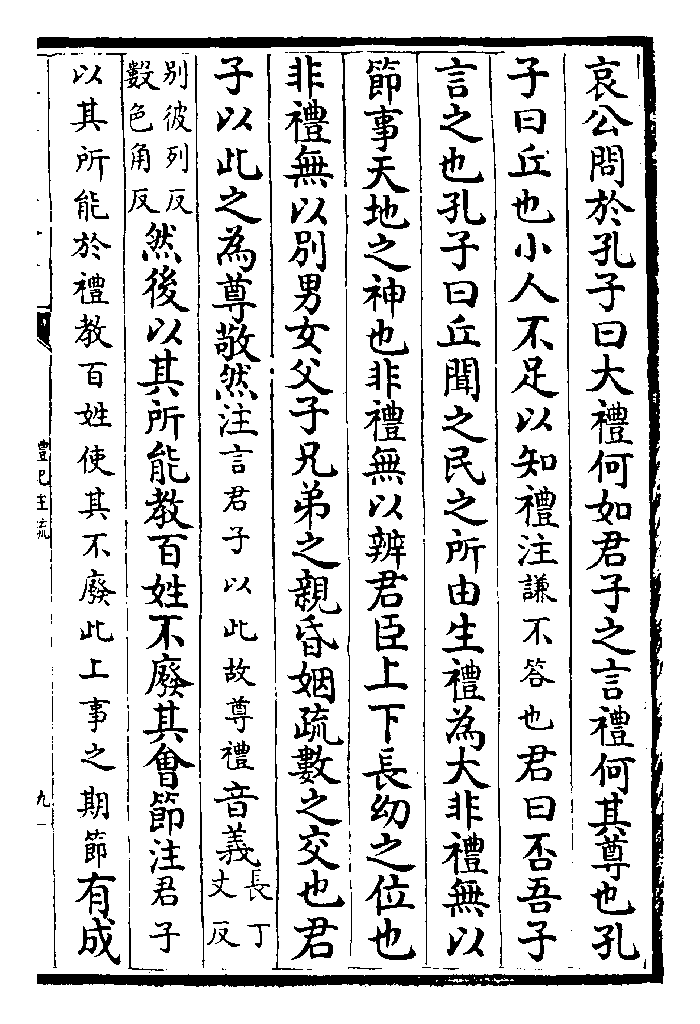 哀公問於孔子曰大禮何如君子之言禮何其尊也孔
子曰丘也小人不足以知禮注謙不答也君曰否吾子
言之也孔子曰丘聞之民之所由生禮為大非禮無以
節事天地之神也非禮無以辨君臣上下長幼之位也
非禮無以別男女父子兄弟之親昏姻疏數之交也君
子以此之為尊敬然注言君子以此故尊禮音義長丁丈反
別彼列反數色角反然後以其所能教百姓不廢其會節注君子
以其所能於禮教百姓使其不廢此上事之期節有成
禮記注疏
九